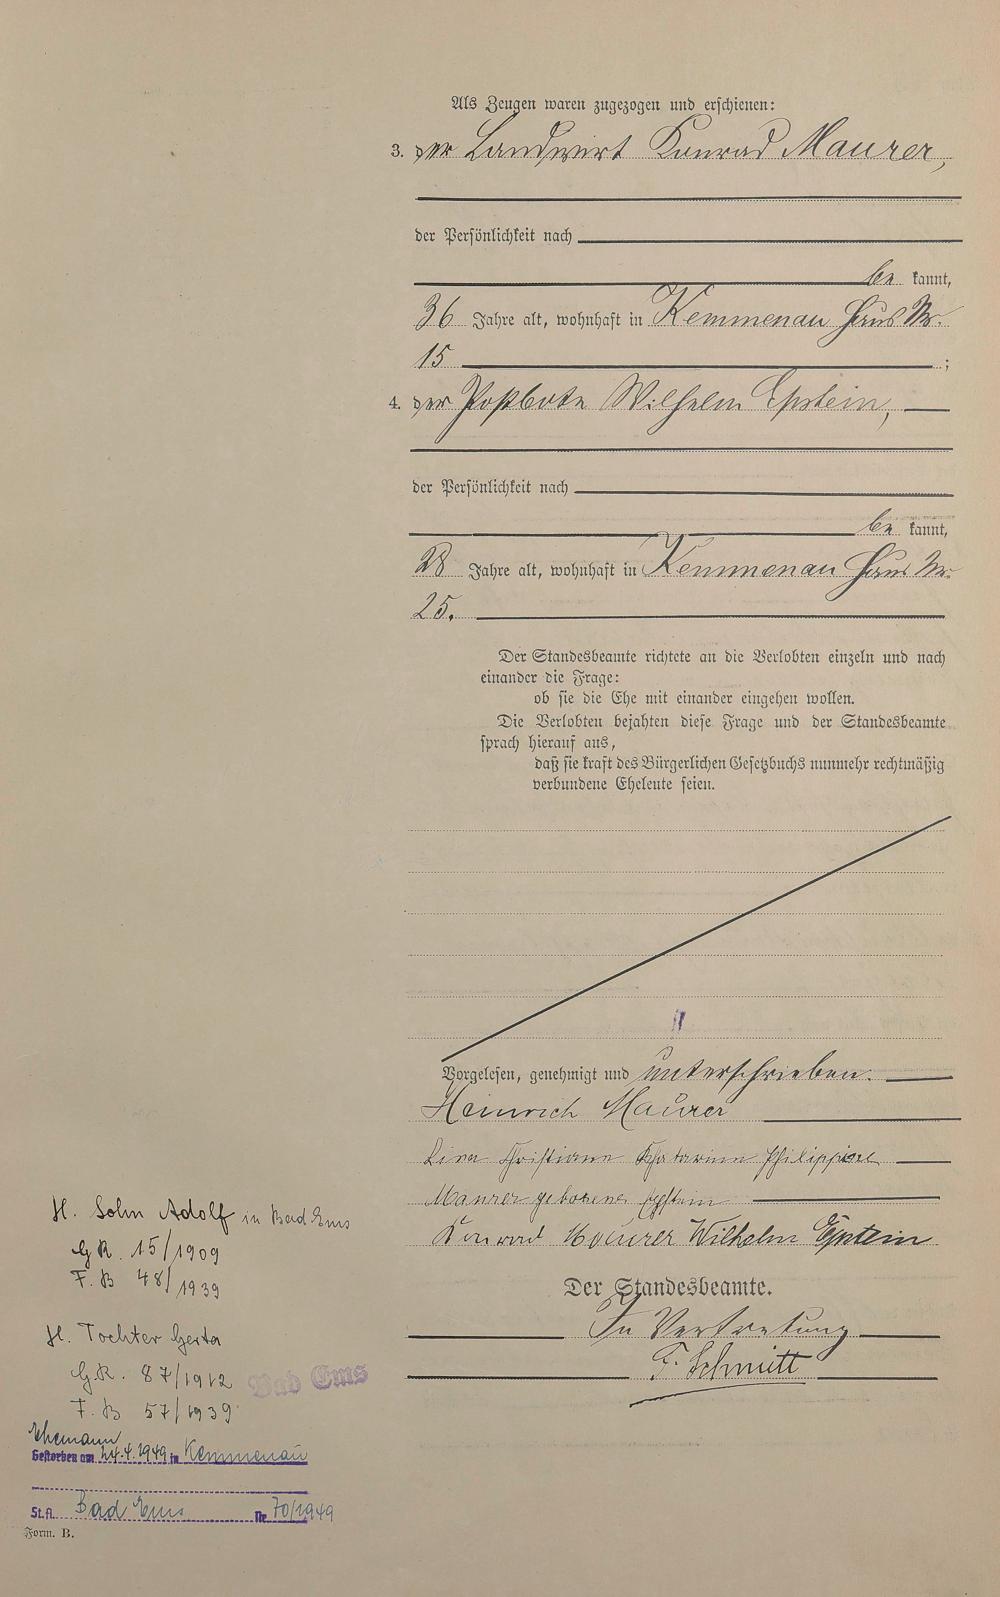 Als Zeugen waren zugezogen und erschienen:
3. der Landwirt Konrad Maurer,
der Persönlichkeit nach
be kannt,
36 Jahre alt, wohnhaft in Kemmenau Haus Nr.
15 ;
4. der Postbote Wilhelm Epstein,
der Persönlichkeit nach
be kannt,
28 Jahre alt, wohnhaft in Kemmenau Haus Nr.
25.
Der Standesbeamte richtete an die Verlobten einzeln und nach
einander die Frage:
ob sie die Ehe mit einander eingehen wollen.
Die Verlobten bejahten diese Frage und der Standesbeamte
sprach hierauf aus,
daß sie kraft des Bürgerlichen Gesetzbuchs nunmehr rechtmäßig
verbundene Eheleute seien.
Vorgelesen, genehmigt und unterschrieben.
Heinrich Maurer
Lina Christiane Katarine Philippine
Maurer geborene Epstein
Konrad Maurer Wilhelm Epstein
Der Standesbeamte.
In Vertretung
F. Schmitt
H. Sohn Adolf in Bad Ems
G.R. 15/1909
F.B 48/1939
H. Tochter Gerta
G.R. 87/1912
Bad Ems
F.B 57/1939
Ehemann
Gestorben am 24.4.1949 in Kemmenau
St.A. Bad Ems Nr 70/1949
Form. B.